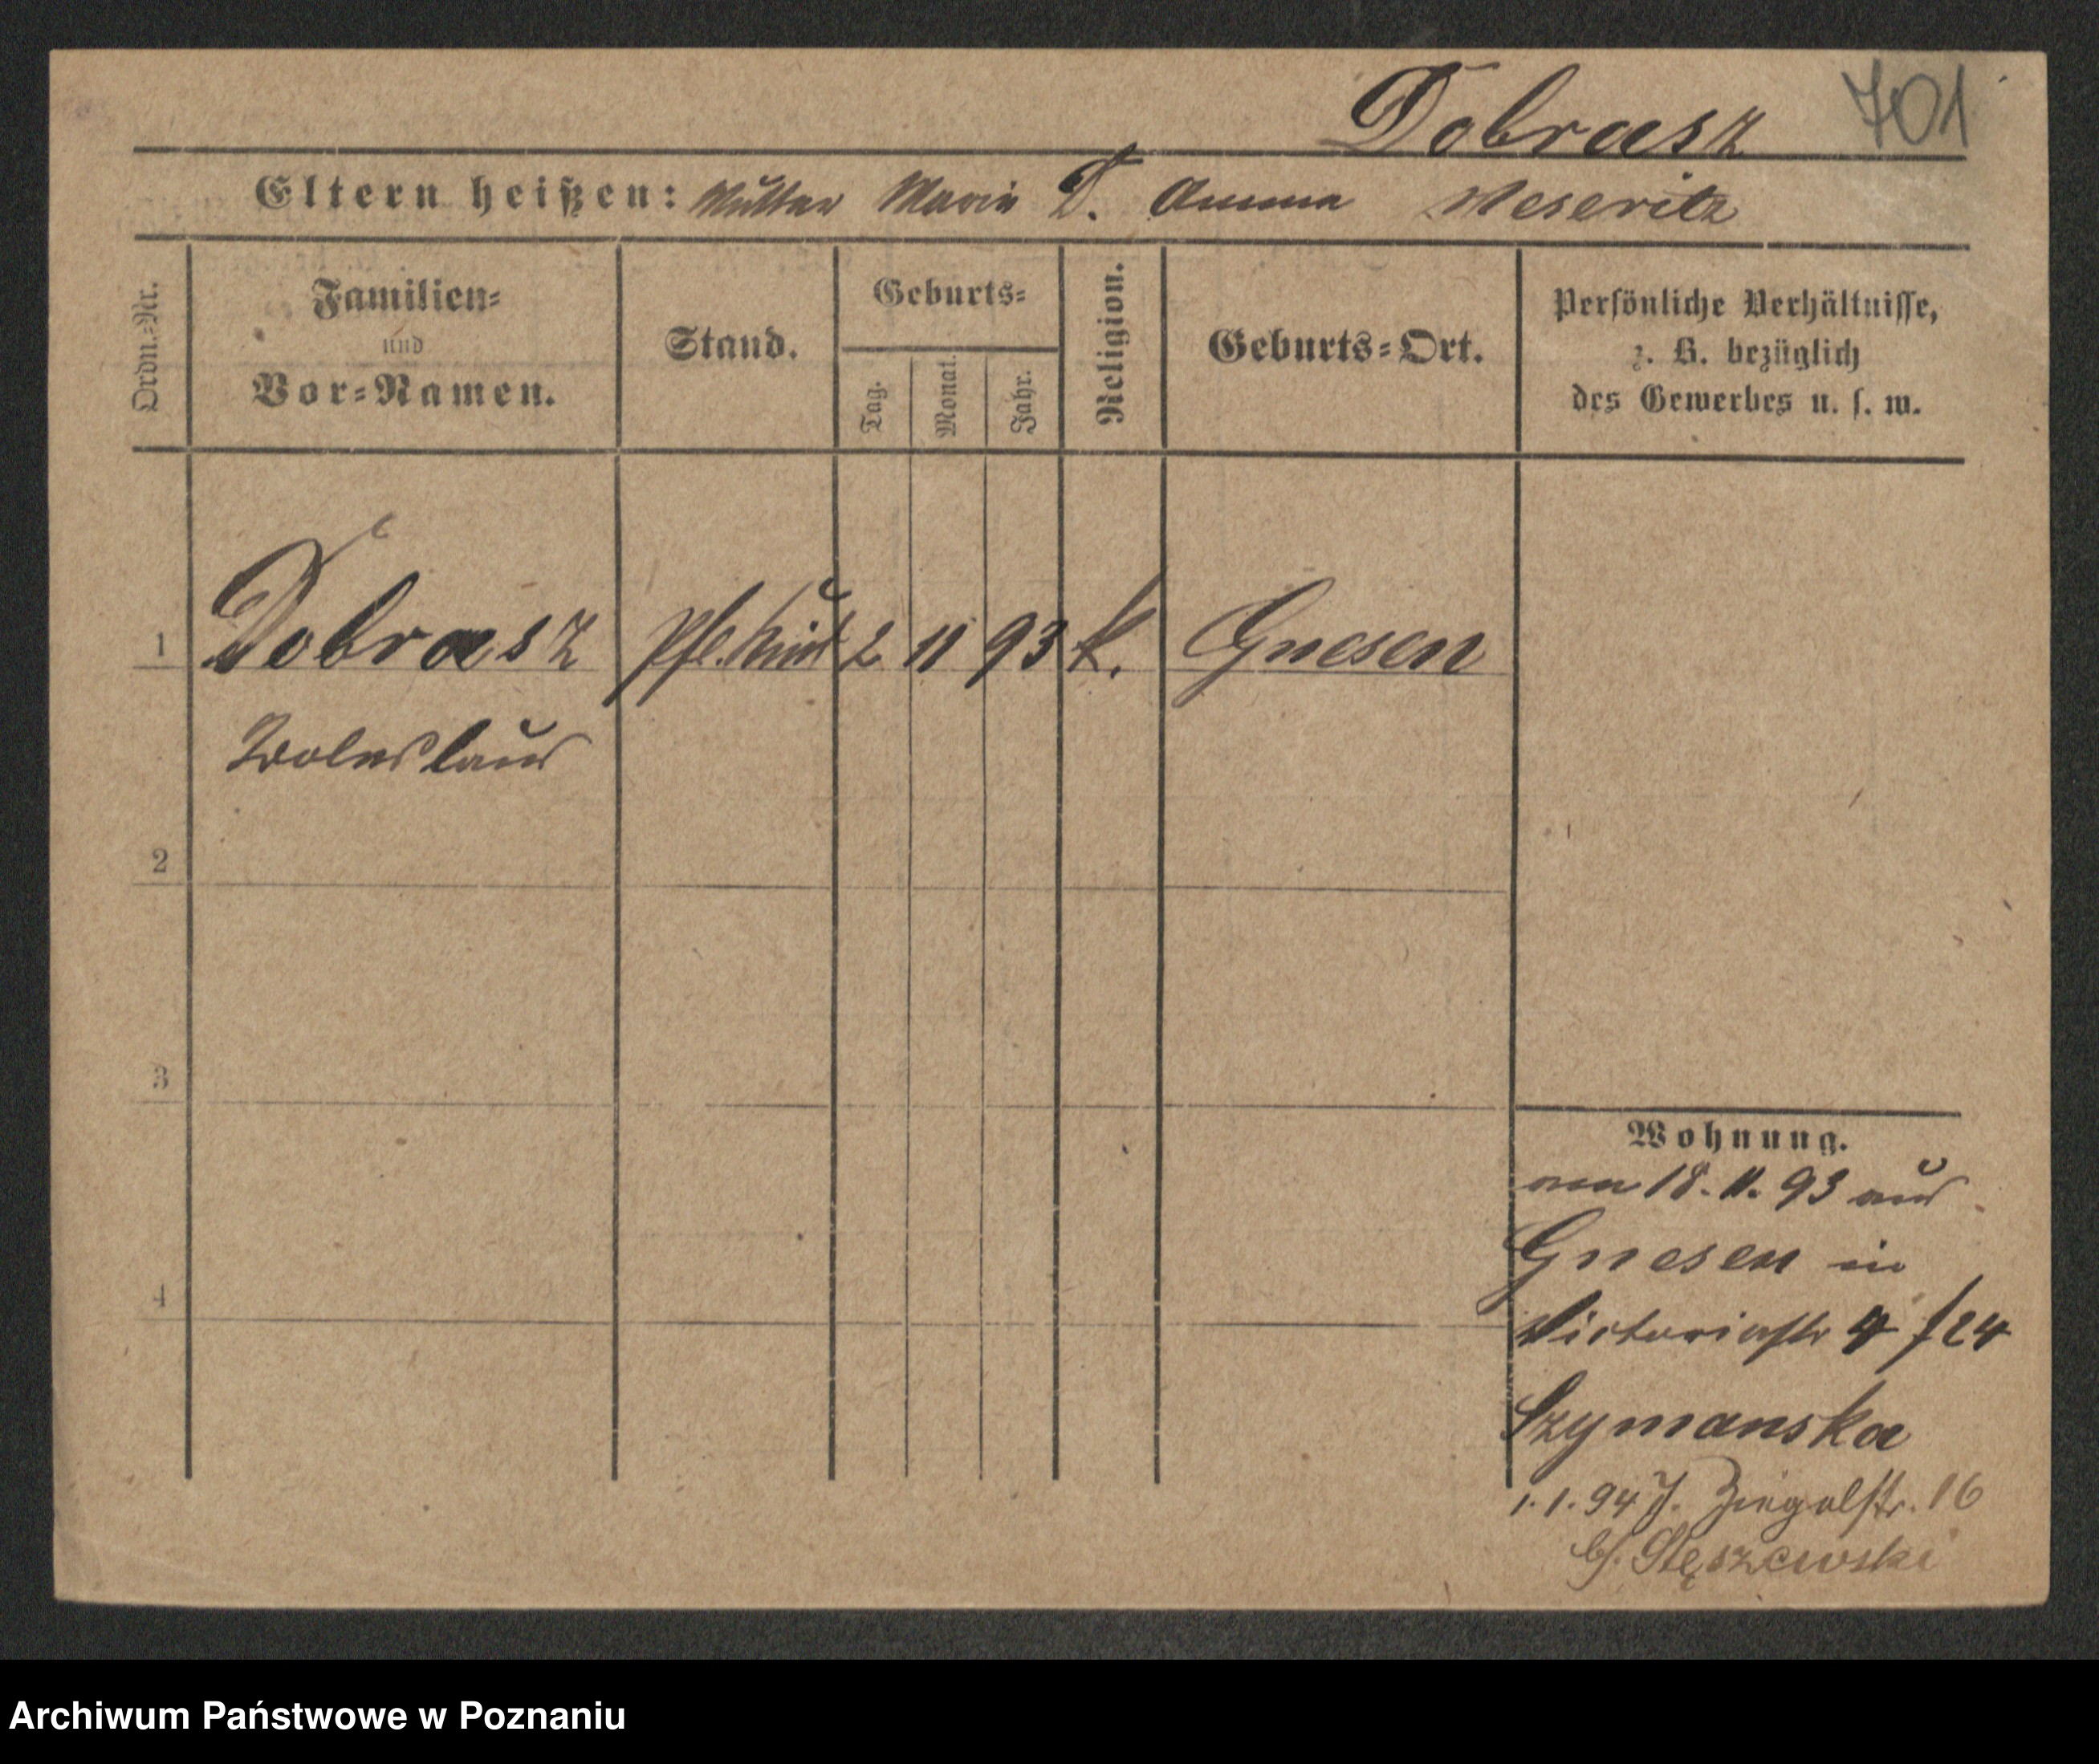 Dobrasz 701
Eltern heißen: Mutter Marie D. Amme Meseritz
Ordn.-Nr.
Familien-
und
Vor-Namen.
Stand.
Geburts-
Tag.
Monat.
Jahr.
Religion.
Geburts-Ort.
Persönliche Verhältnisse,
z. B. bezüglich
des Gewerbes u. s. w.
1 Dobrasz Pfl. Kind 2 11 93 k. Gnesen
Boleslaus
2
3
4
Wohnung.
am 18. 11. 93 aus
Gnesen in
Victoriastr 4 /24
Szymanska
1. 1. 94 J. Ziegelstr. 16
b/ Stęszewski
Archiwum Państwowe w Poznaniu